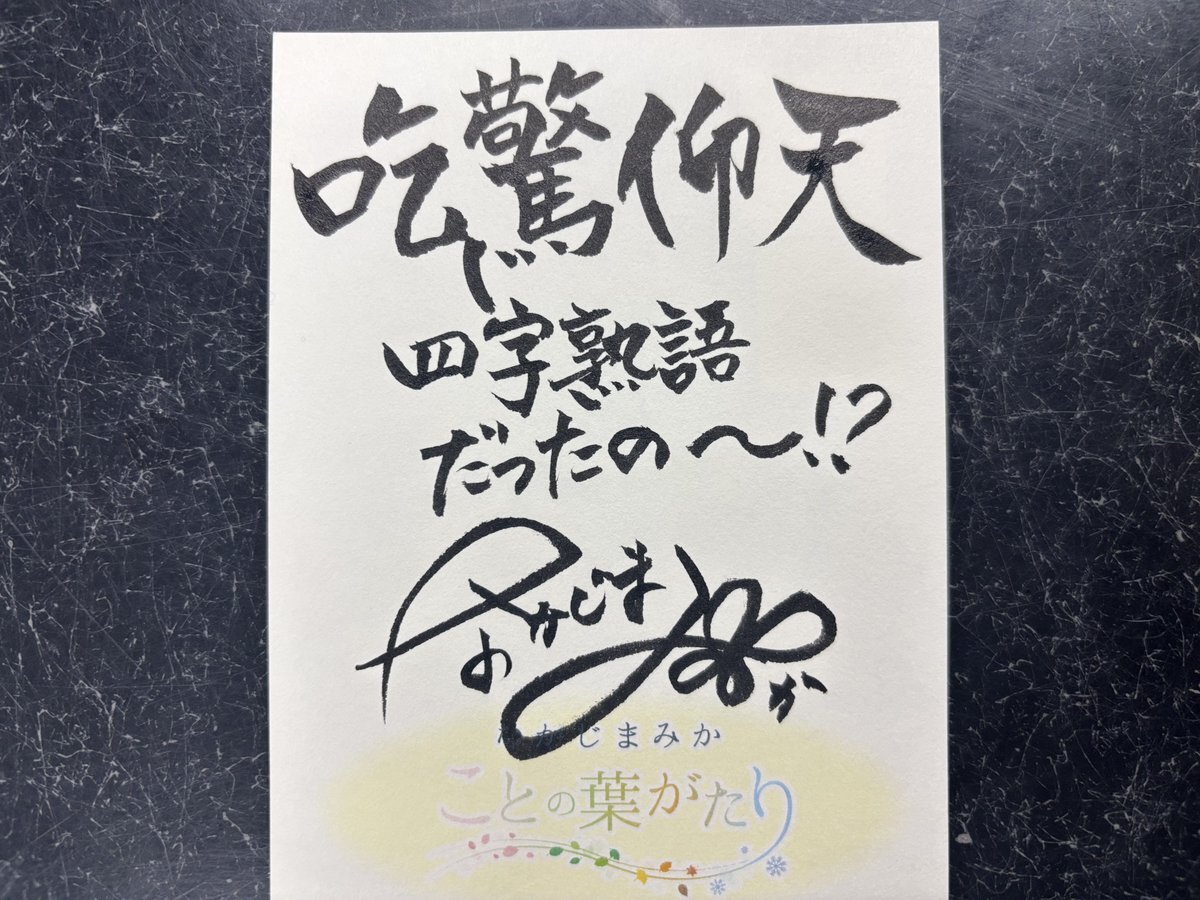 吃驚仰天
四字熟語
だったの〜!?
なかじまみか
なかじまみか
ことの葉がたり